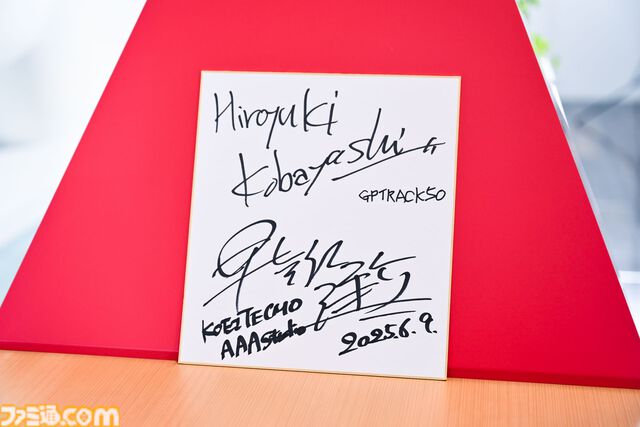 Hiroyuki
Kobayashi
GPTRACK50
KOEI TECMO
AAA Studio
2025.6.9.
ファミ通.com